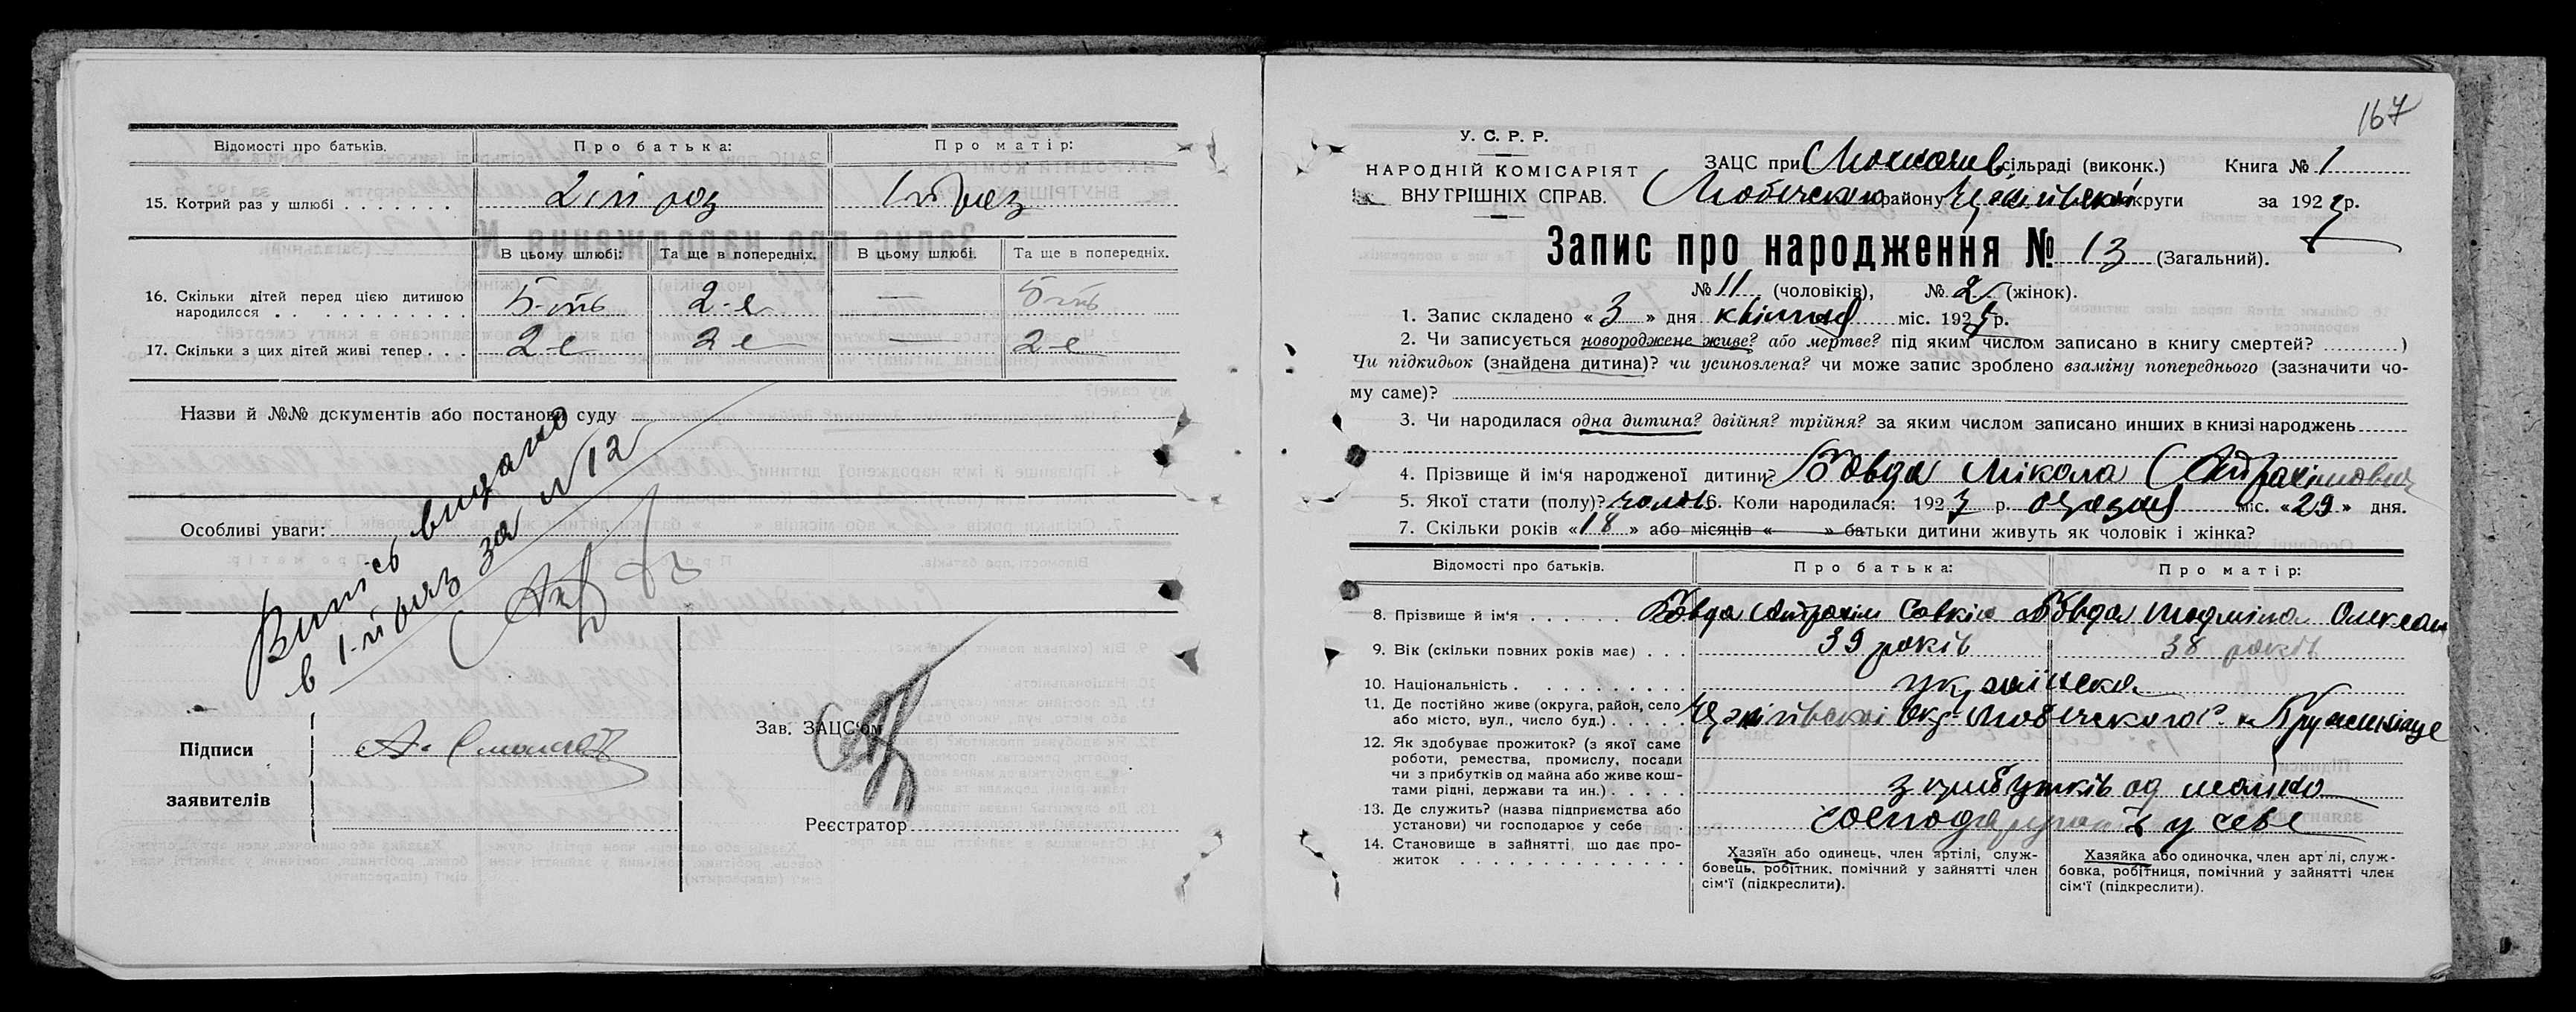 Відомості про батьків. Про батька: Про матір:
15. Котрий раз у шлюбі 2-ий раз 1-ий раз
В цьому шлюбі: Та ще в попередніх. В цьому шлюбі. Та ще в попередніх.
16. Скільки дітей перед цією дитиною народилося 5-ть 2-є — 5-ть
17. Скільки з цих дітей живі тепер 2-є 2є — 2-є
Назви й №№ документів або постанови суду
Особливі уваги:
Випісь видано
в 1-ий раз за № 12
Підписи заявителів
Зав. ЗАЦС'ом
Реєстратор
167
У. С. Р. Р.
НАРОДНІЙ КОМІСАРІЯТ
ВНУТРІШНІХ СПРАВ.
ЗАЦС при сільраді (виконк.) Книга № 1
Любечского району округи за 1927 р.
Запис про народження № 13 (Загальний).
№ 11 (чоловіків), № 2 (жінок).
1. Запис складено « 3 » дня квітня міс. 1927 р.
2. Чи записується новороджене живе? або мертве? під яким числом записано в книгу смертей? )
Чи підкидьок (знайдена дитина)? чи усиновлена? чи може запис зроблено взаміну попереднього (зазначити чо-
му саме)?
3. Чи народилася одна дитина? двійня? трійня? за яким числом записано инших в книзі народжень
4. Прізвище й ім'я народженої дитини? Бовда Мікола
5. Якої стати (полу)? чолов 6. Коли народилася: 1927 р. міс. «29» дня.
7. Скільки років «18» або місяців « » батьки дитини живуть як чоловік і жінка?
Відомості про батьків. Про батька: Про матір:
8. Прізвище й ім'я Бовда Савкін Бовда
9. Вік (скільки повних років має) 39 років 38 років
10. Національність українська
11. Де постійно живе (округа, район, село або місто, вул., число буд.) Окр. Любечского Р.
12. Як здобуває прожиток? (з якої саме роботи, ремества, промислу, посади чи з прибутків од майна або живе коштами рідні, держави та ин.) з прибутків од майна
13. Де служить? (назва підприємства або установи) чи господарює у себе господарують у себе
14. Становище в зайнятті, що дає прожиток
Хазяїн або одинець, член артілі, служ-
бовець, робітник, помічний у зайнятті член
сім'ї (підкреслити).
Хазяйка або одиночка, член артілі, служ-
бовка, робітниця, помічний у зайнятті член
сім'ї (підкреслити).